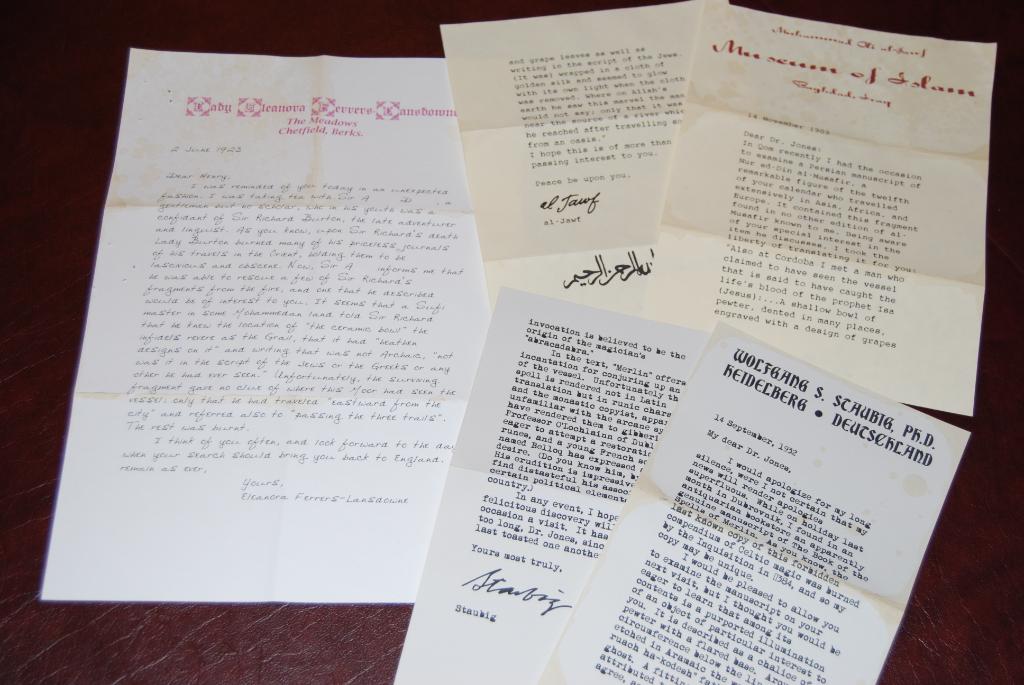 Lady Eleanora Ferrers-Lansdowne
The Meadows
Chetfield, Berks.
2 June 1923
Dear Henry,
I was reminded of you today in an unexpected
fashion. I was taking tea with Sir A D , a
gentleman but no scholar, who in his youth was a
confidant of Sir Richard Burton, the late adventurer
and linguist. As you know, upon Sir Richard's death
Lady Burton burned many of his priceless journals
of his travels in the Orient, holding them to be
lascivious and obscene. Now, Sir A informs me that
he was able to rescue a few of Sir Richard's
fragments from the fire, and one that he described
would be of interest to you. It seems that a Sufi
master in some Mohammedan land told Sir Richard
that he knew the location of "the ceramic bowl" the
infidels revere as the Grail, that it had "heathen
designs on it" and writing that was not Arabic, "nor
was it in the script of the Jews or the Greeks or any
other he had ever seen." Unfortunately, the surviving
fragment gave no clue of where this Moor had seen the
vessel: only that he had traveled "eastward from the
city" and referred also to "passing the three trails".
The rest was burnt.
I think of you often, and look forward to the day
when your search should bring you back to England.
remain as ever,
Yours,
Eleanora Ferrers-Lansdowne
and grape leaves as well as
writing in the script of the Jews.
(It was) wrapped in a cloth of
golden silk and seemed to glow
with its own light when the cloth
was removed. Where on Allah's
earth he saw this marvel the man
would not say; only that it was
near the source of a river which
he reached after travelling so
from an oasis."
I hope this is of more than
passing interest to you.
Peace be upon you.
al Jawf
al-Jawf
الرحمن الرحيم
Muhammad Ali al-Jawf
Museum of Islam
Baghdad, Iraq
14 November 1903
Dear Dr. Jones:
In Qom recently I had the occasion
to examine a Persian manuscript of
Nur ed-Din al-Musafir, a
remarkable figure of the twelfth
of your calendar, who travelled
extensively in Asia, Africa, and
Europe. It contained this fragment
found in no other edition of al-
Musafir known to me. Being aware
of your special interest in the
item he discusses, I took the
liberty of translating it for you:
"Also at Cordoba I met a man who
claimed to have seen the vessel
that is said to have caught the
life's blood of the prophet Isa
(Jesus):...A shallow bowl of
pewter, dented in many places,
engraved with a design of grapes
invocation is believed to be the
origin of the magician's
"abracadabra."
In the text, "Merlin" offers
incantation for conjuring up an
of the vessel. Unfortunately th
spell is rendered not in Latin
translation but in runic charac
and the monastic copyist, appa
unfamiliar with the arcane a
have rendered them to gibberi
Professor O'Lochlainn of Dubl
eager to attempt a restoratio
runes, and a young French sc
named Belloq has expressed
desire. (Do you know him, b
His erudition is impressive
find distasteful his assoc
certain political element
country.)
In any event, I hope
felicitous discovery will
occasion a visit. It has
too long, Dr. Jones, sinc
last toasted one anothe
Yours most truly,
Staubig
Staubig
WOLFGANG S. STAUBIG, Ph.D.
HEIDELBERG • DEUTSCHLAND
14 September, 1932
My dear Dr. Jones,
I would apologize for my long
silence, were I not certain that my
news will render apologies
superfluous. While on holiday last
month in Dubrovnik, I found in an
antiquarian bookstore an apparently
genuine manuscript of The Book of the
Spells of Merlin. As you know, the
last known copy of this forbidden
compendium of Celtic magic was burned
by the Inquisition in 1384, and so my
copy may be unique.
I would be pleased to allow you
to examine the manuscript on your
next visit, but I thought you would be
eager to learn that among its
contents is a purported illumination
of an object of particular interest to
you. It is described as a chalice of
pewter with a flared base. Arou
circumference below the lip
etched in Aramaic the w
ruach ha-kodesh" fai
ghost. A fittin
attributed t
agree, as